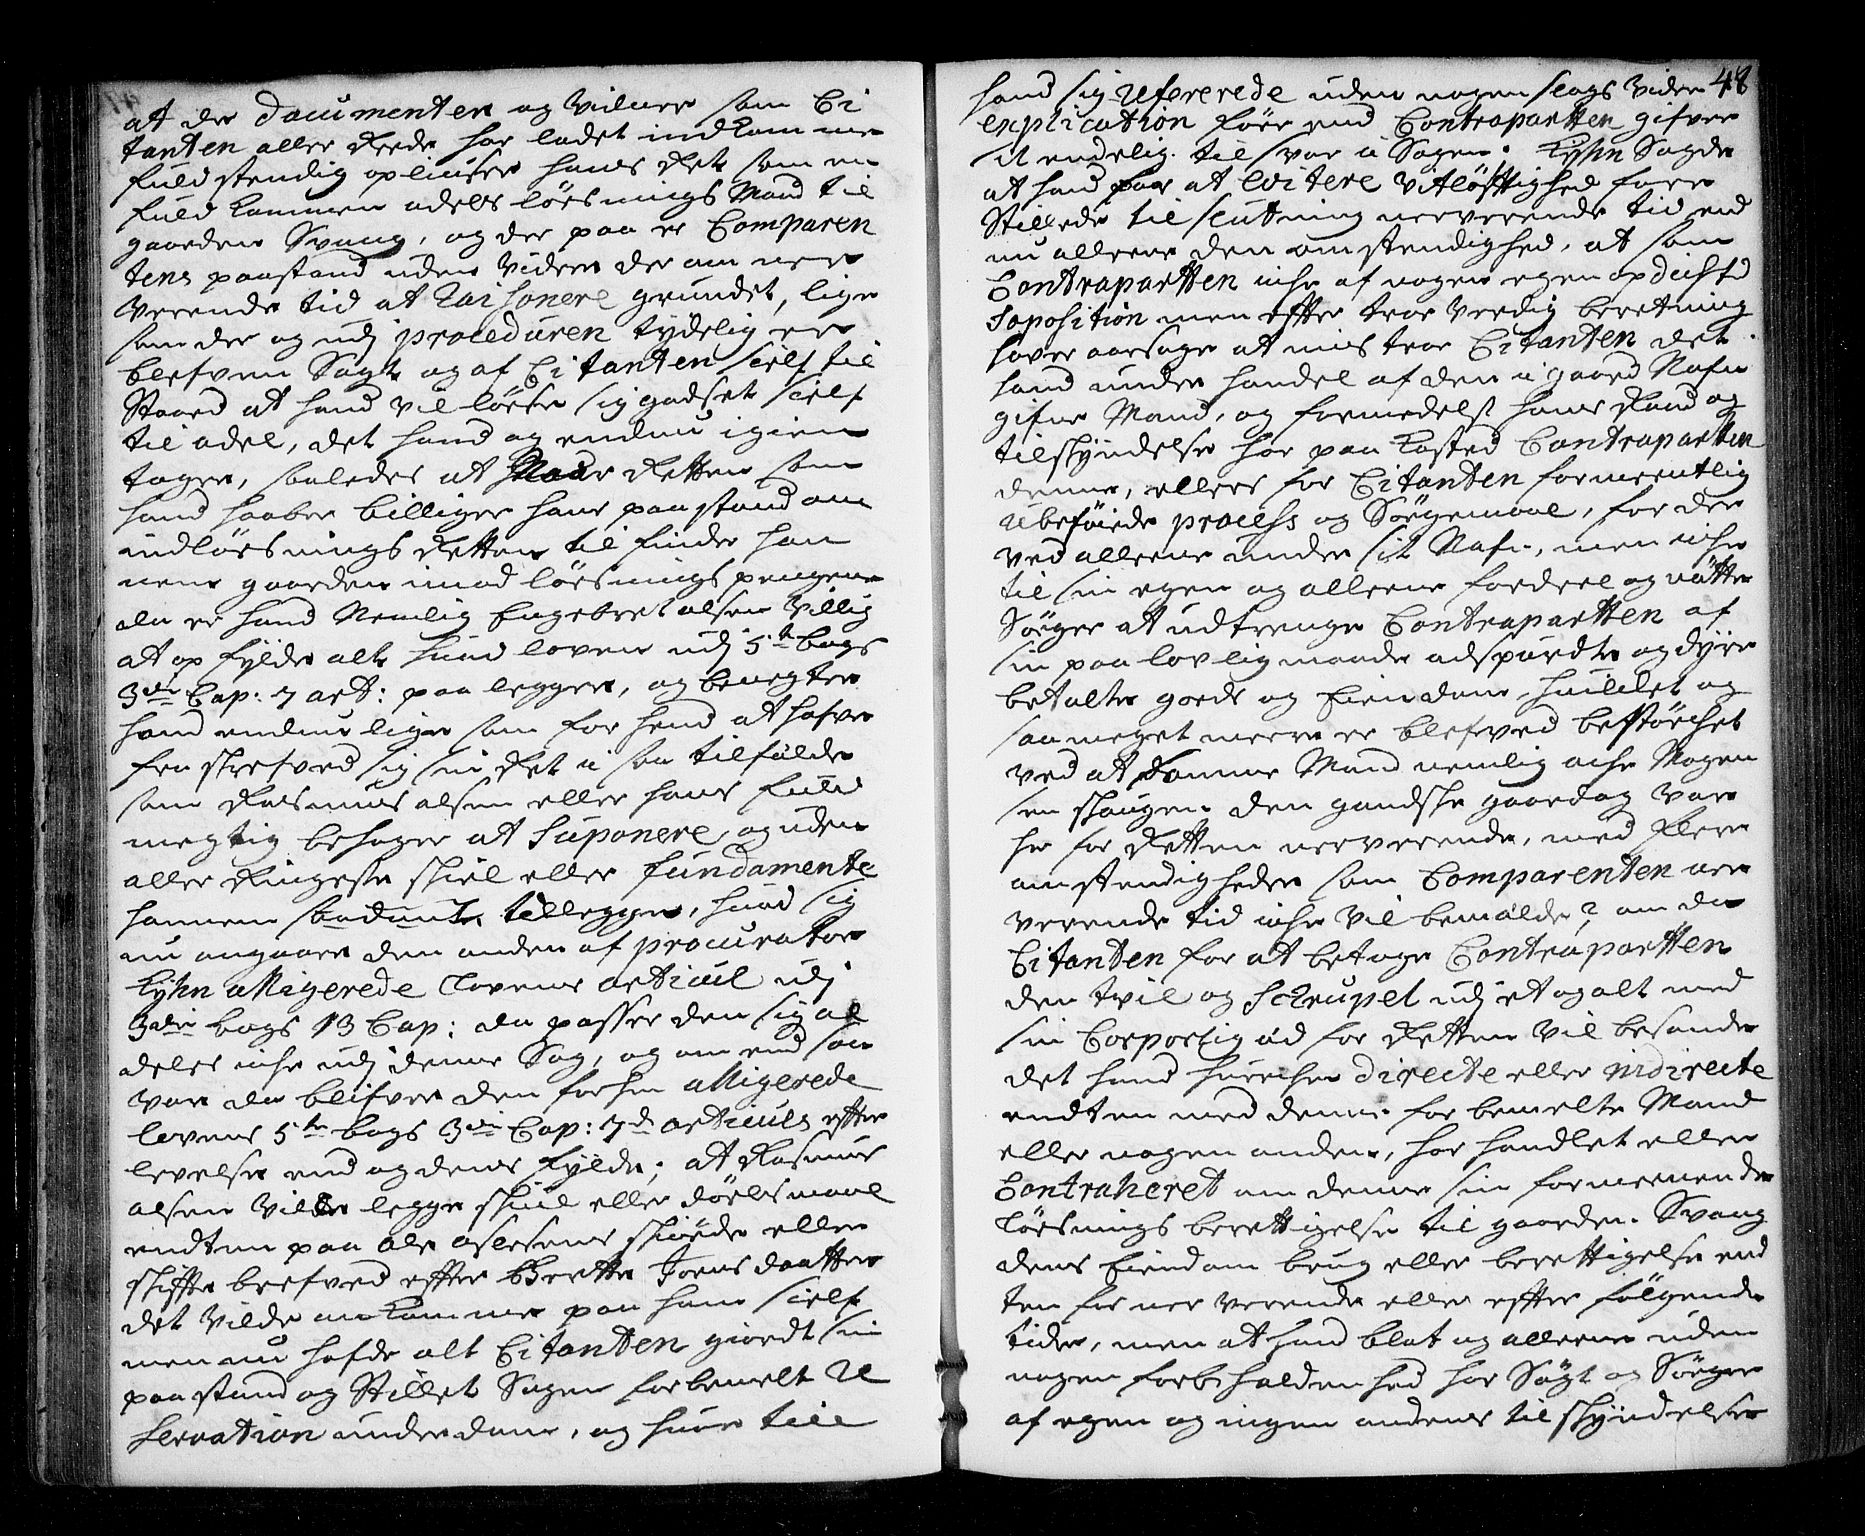 at de documenter og vidner som Ci
tanten allerede har ladet indkomme
fuldstendig opliuser hans Ret som en
fuldkommen odels løsnings Mand til
gaarden Svang, og der paa er Comparen
tens paastand uden videre der om nær
værende tid at Raisonere grundet, lige
som der og udj proceduren tydelig er
blefven Sagt og af Citanten self til
staaed at hand vil løse sig godset self
til odel, det hand og endnu igien
tager, saaledes at Naar Retten som
hand haaber billiger hans paastand om
indløsnings Retten til finder han
nem gaarden imod løsnings pengene
da er hand Nemlig Engebret olsen villig
at opfylde alt hvad loven udj 5te bogs
3die Cap: 7 art: paalegger, og benegter
hand endnu lige som for hend at hafve
fraskrefved sig sin Ret i saa tilfælde
som Rasmus olsen eller hans fuld
megtig behager at Suponere, og uden
aller Ringeste skiel eller fundamente
hannem saadant tillegger, hvad sig
nu angaar den anden af procurator
Kyhn alligerede Lovens articul udj
3die bogs 13 Cap: da passer den sig al
deles iche udj denne Sag, og om end saa
var da blifver den forhen alligerede
lovens 5te bogs 3die Cap: 7de articuls efter
levelse end og dens fylde; at Rasmus
olsen vilde legge skiul eller dølsmaal
endten paa Ole Olesens skiøde eller
skifte brefved efter Grette Joensdaatter
det vilde ankomme paa ham self
men nu hafde alt Citanten giordt sin
paastand og stillet Sagen forbemelt Re
servation under dom, og hvor till
48
hand sig Refererede uden nogen slags vider
explication före end Contraparten gifver
sit endelig til svar i Sagen. Kyhn Sagde
at hand for at evitere vitløftighed fore
stillede til slutning nerverende tid end
nu alleene den omstendighed, at som
Contraparten iche af nogen egen opdicht
Soposition men efter troe verdig beretning
haver aarsage at mistroe Citanten det
hand under handel af den i gaard Nafn
gifne Mand, og formedelst hans Raad og
tilskyndelse har paa kosted Contraparten
denne, ellers for Citanten formeentlig
Ubeføiede process og Søgemaal, for der
ved alleene under sit Nafn, men iche
til sin egen og alleene fordeel og nøtte
Søger at udtrenge Contraparten af
sin paa lovlig maade adspurdte og dyre
betalte gods og Eiendom, hvilchet og
saa meget meere er blefved bestørchet
ved at samme Mand nemlig ache Mogen
sen skougen den gandske gaardag var
her for Retten nerverende, med flere
omstendigheder som Comparenten nær
værende tid iche vil bemælde? om da
Citanten for at betage Contraparten
den tvil og Schrupel udj et og alt med
sin Corporlig æd for Retten vil besande
det hand hverchen directe eller indirecte
endten med denne forbemelte Mand
eller nogen anden, har handlet eller
Contraheret om denne sin formeenende
løsnings berettigelse til gaarden Svang
dens Eiendom brug eller berettigelse end
ten for nerverende eller efter følgende
tider, men at hand blot og alleene uden
nogen forbeholdenhed har Søgt og Søger
af egen og ingen andens tilskyndelse